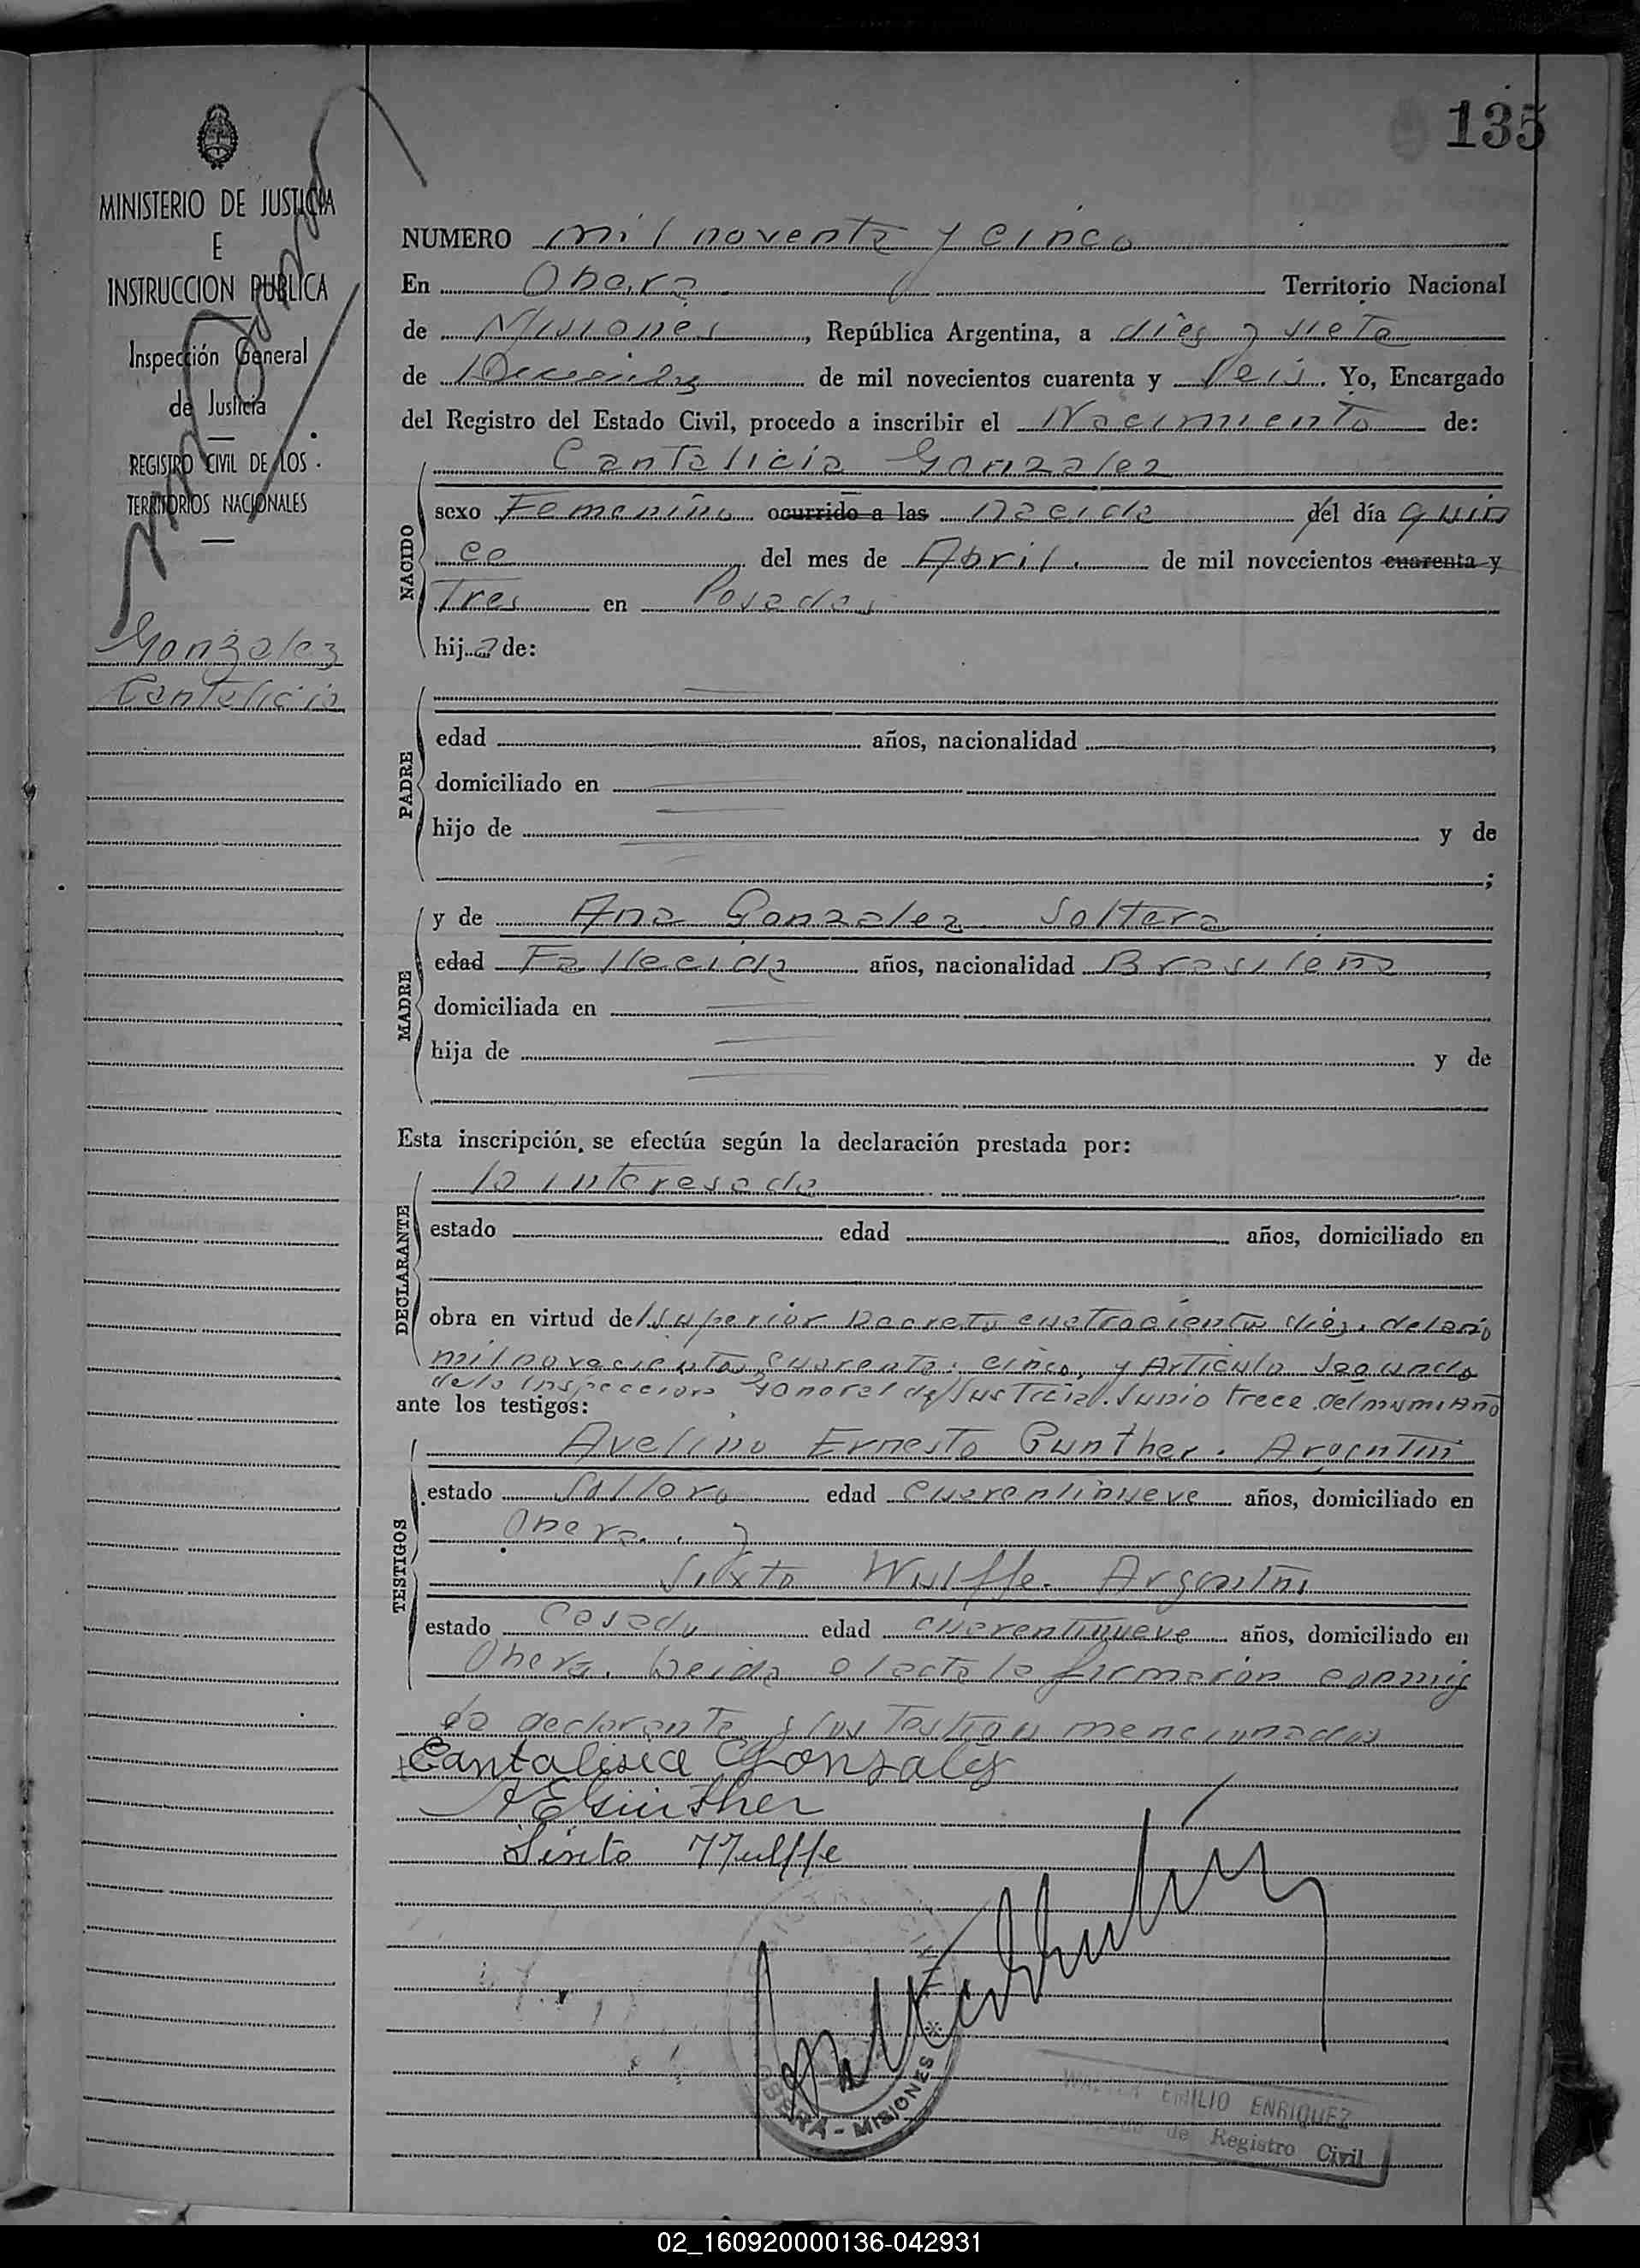 135
MINISTERIO DE JUSTICIA
E
INSTRUCCION PUBLICA
Inspección General
de Justicia
REGISTRO CIVIL DE LOS
TERRITORIOS NACIONALES
Gonzalez
Cantalicia
NUMERO mil noventa y cinco
En Obera Territorio Nacional
de Misiones, República Argentina, a dies y siete
de Diciembre de mil novecientos cuarenta y seis. Yo, Encargado
del Registro del Estado Civil, procedo a inscribir el Nacimiento de:
Cantalicia Gonzalez
NACIDO
sexo Femenino ocurrido a las nacida del día quin
ce del mes de Abril de mil novecientos cuarenta y
Tres en Posadas
hija de:
PADRE
edad años, nacionalidad ,
domiciliado en
hijo de y de
;
MADRE
y de Ana Gonzalez Soltera
edad Fallecida años, nacionalidad Brasileña,
domiciliada en
hija de y de
Esta inscripción, se efectúa según la declaración prestada por:
DECLARANTE
la interesada
estado edad años, domiciliado en
obra en virtud del superior Decreto cuatrocientos diez. del año
mil novecientos cuarenta. cinco, y Articulo Segundo
de la Inspeccion General de Justicia. Junio trece del
ante los testigos:
TESTIGOS
Avelino Ernesto Gunther. Argentin
estado Soltero edad cuarentinueve años, domiciliado en
Obera. y
Sixto Wulffe. Argentin
estado Casado edad cuarentinueve años, domiciliado en
Obera. Leida el acta la firmaron conmig
la declarante y los testigos mencionados
Cantalisia Gonzales
A E Günther
Sixto Wulffe
OBERA - MISIONES
EMILIO ENRIQUEZ
de Registro Civil
02_160920000136-042931